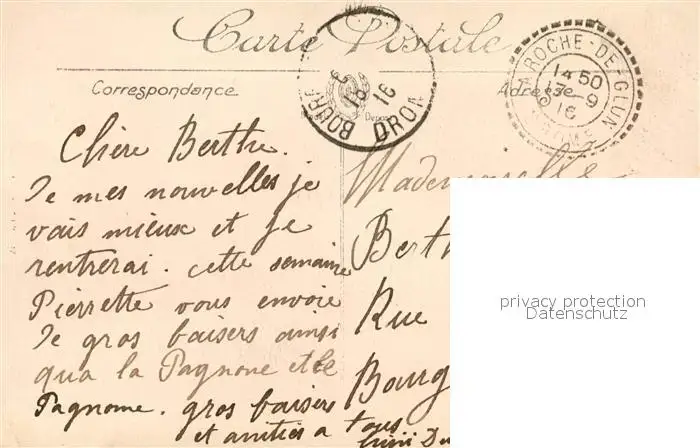 Carte Postale
Correspondance
Adresse
BOURG
DROM
16
LAROCHE-DE-GLUN
14 50
17-9
16
DROME
Chère Berthe.
De mes nouvelles je
vais mieux et je
rentrerai. cette semaine
Pierrette vous envoie
de gros baisers ainsi
qua la Pagnone et le
Pagnome. gros baisers
et amitiés a tous
Mademoiselle
Berth
Rue
Bourg
privacy protection
Datenschutz